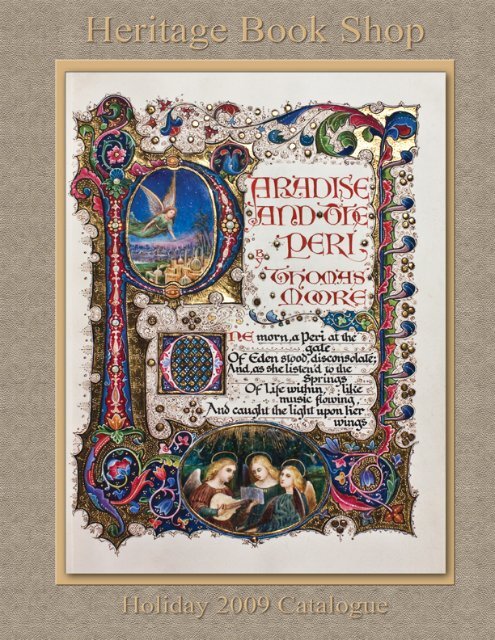 Heritage Book Shop
PARADISE
AND THE
PERI
BY
THOMAS
MOORE
ONE morn, a Peri at the
gate
Of Eden stood, disconsolate;
And, as she listen'd to the
Springs
Of Life within, like
music flowing,
And caught the light upon her
wings
Holiday 2009 Catalogue